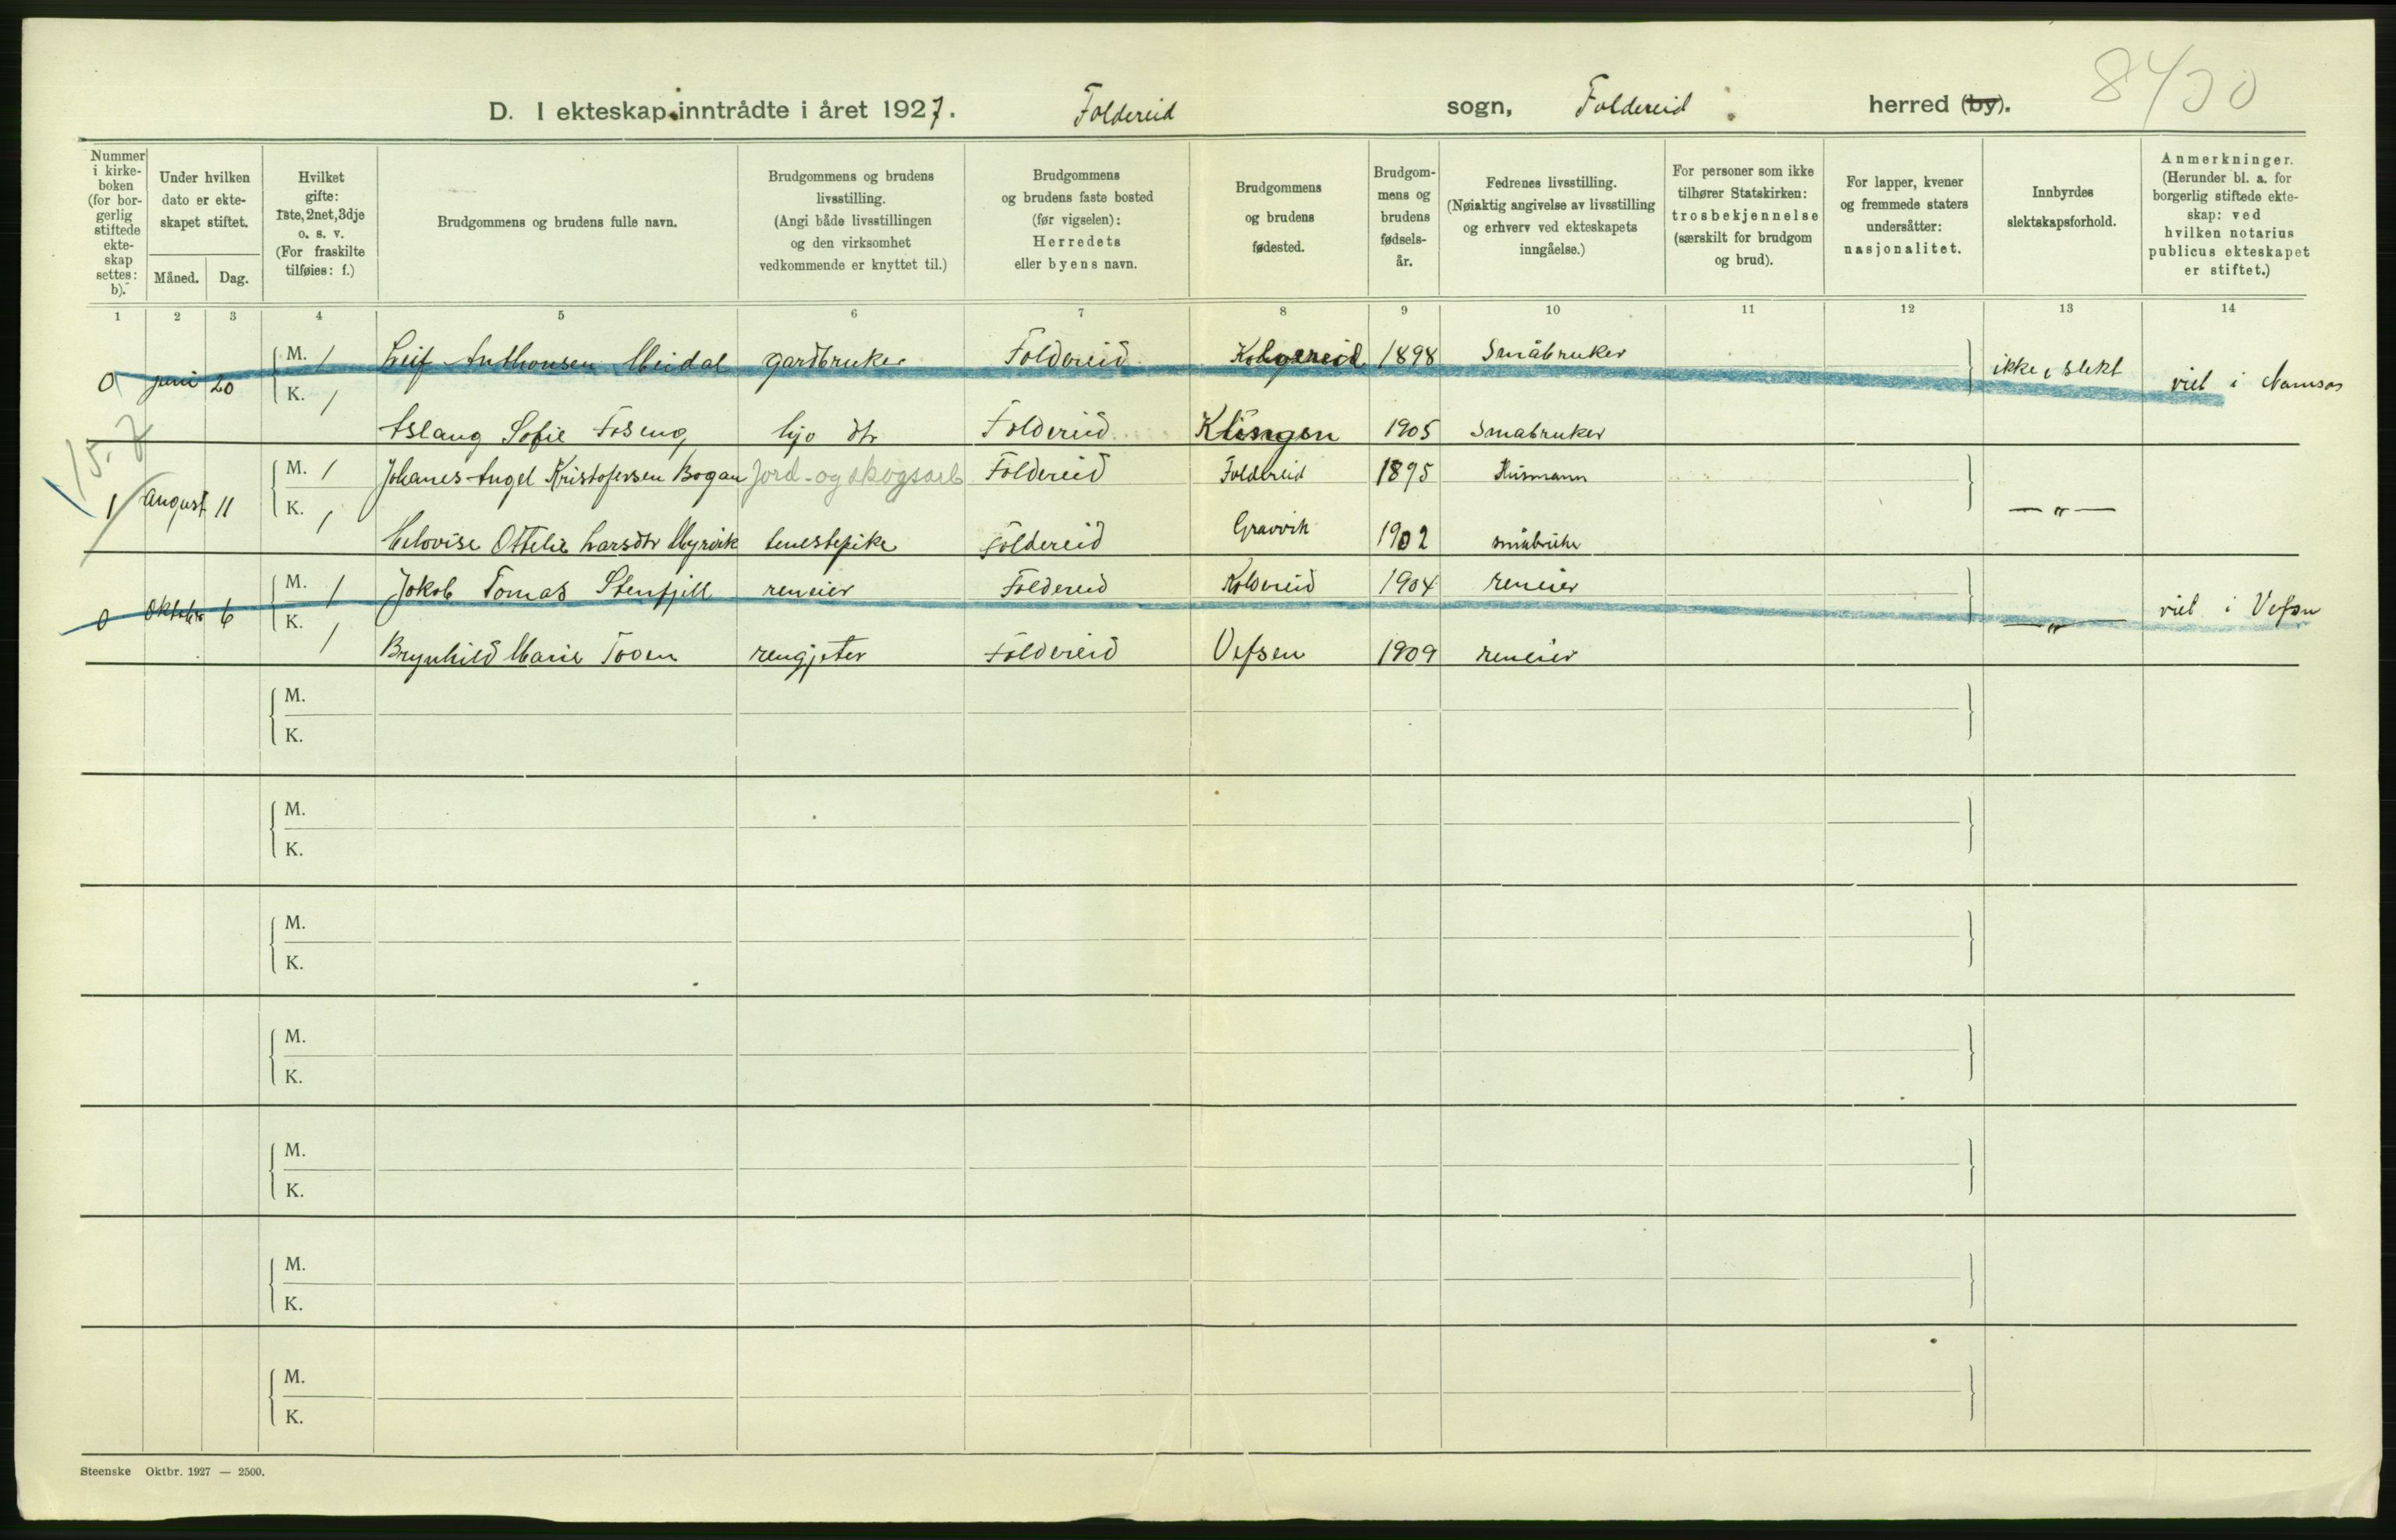 8430
D. I ekteskap inntrådte i året 1927. Foldereid sogn, Foldereid herred (by).
Nummer i kirkeboken (for borgerlig stiftede ekteskap settes: b).
Under hvilken dato er ekteskapet stiftet.
Måned. Dag.
Hvilket gifte: 1ste, 2net, 3dje o. s. v. (For fraskilte tilføies: f.)
Brudgommens og brudens fulle navn.
Brudgommens og brudens livsstilling. (Angi både livsstillingen og den virksomhet vedkommende er knyttet til.)
Brudgommens og brudens faste bosted (før vigselen): Herredets eller byens navn.
Brudgommens og brudens fødested.
Brudgommens og brudens fødselsår.
Fedrenes livsstilling. (Nøiaktig angivelse av livsstilling og erhverv ved ekteskapets inngåelse.)
For personer som ikke tilhører Statskirken: trosbekjennelse (særskilt for brudgom og brud).
For lapper, kvener og fremmede staters undersåtter: nasjonalitet.
Innbyrdes slektskapsforhold.
Anmerkninger. (Herunder bl. a. for borgerlig stiftede ekteskap: ved hvilken notarius publicus ekteskapet er stiftet.)
1 2 3 4 5 6 7 8 9 10 11 12 13 14
0 juni 20 M. 1 Leif Anthonsen Meidal gardbruker Foldereid 1898 Småbruker ikke i slekt viet i Namsos
K. 1 Aslaug Sofie Foseng Foldereid Klingen 1905 Småbruker
1 august 11 M. 1 Johanes Angel Kristofersen Bogan Jord- og skogsarb Foldereid Foldereid 1895 Husmann — " —
K. 1 Helovise Ottelie Larsdtr Myrvik tenestepike Foldereid Gravvik 1902 småbruker
0 Oktober 6 M. 1 Jakob Tomas Stenfjell reneier Foldereid Kolvereid 1904 reneier — " — viet i Vefsn
K. 1 Brynhild Marie Toven rengjeter Foldereid Vefsen 1909 reneier
M.
K.
M.
K.
M.
K.
M.
K.
M.
K.
M.
K.
M.
K.
Steenske Oktbr. 1927 — 2500.